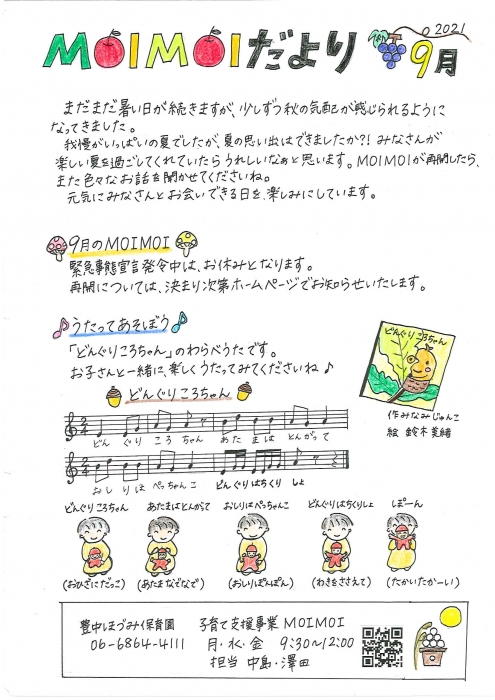 2021
MOIMOIだより 9月
まだまだ暑い日が続きますが、少しずつ秋の気配が感じられるように
なってきました。
我慢がいっぱいの夏でしたが、夏の思い出はできましたか?! みなさんが
楽しい夏を過ごしてくれていたらうれしいなぁと思います。MOIMOIが再開したら、
また色々なお話を聞かせてくださいね。
元気にみなさんとお会いできる日を、楽しみにしています。
9月のMOIMOI
緊急事態宣言発令中は、お休みとなります。
再開については、決まり次第ホームページでお知らせいたします。
♪うたってあそぼう♪
「どんぐりころちゃん」のわらべうたです。
お子さんと一緒に、楽しくうたってみてくださいね♪
どんぐりころちゃん
どんぐりころちゃん
作 みなみじゅんこ
絵 鈴木美緒
どん ぐり ころ ちゃん あた まは とんがって
おしりは ぺっちゃんこ どんぐりはちくり しょ
どんぐりころちゃん あたまはとんがって おしりはぺっちゃんこ どんぐりはちくりしょ ぽーん
(おひざにだっこ) (あたまなでなで) (おしりぽんぽん) (わきをささえて) (たかいたかーい)
豊中ほづみ保育園 子育て支援事業 MOIMOI
06-6864-4111 月・水・金 9:30〜12:00
担当 中島・澤田